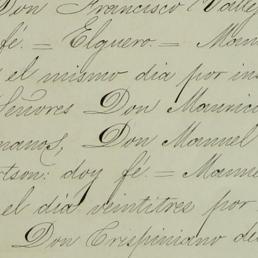 Don Francisco Valle
fé. = Elguero. = Manu
el mismo dia por ins
Señores Don Maurici
manos, Don Manuel
rtson: doy fé. = Manue
el dia veintitres por
Don Crispiniano del